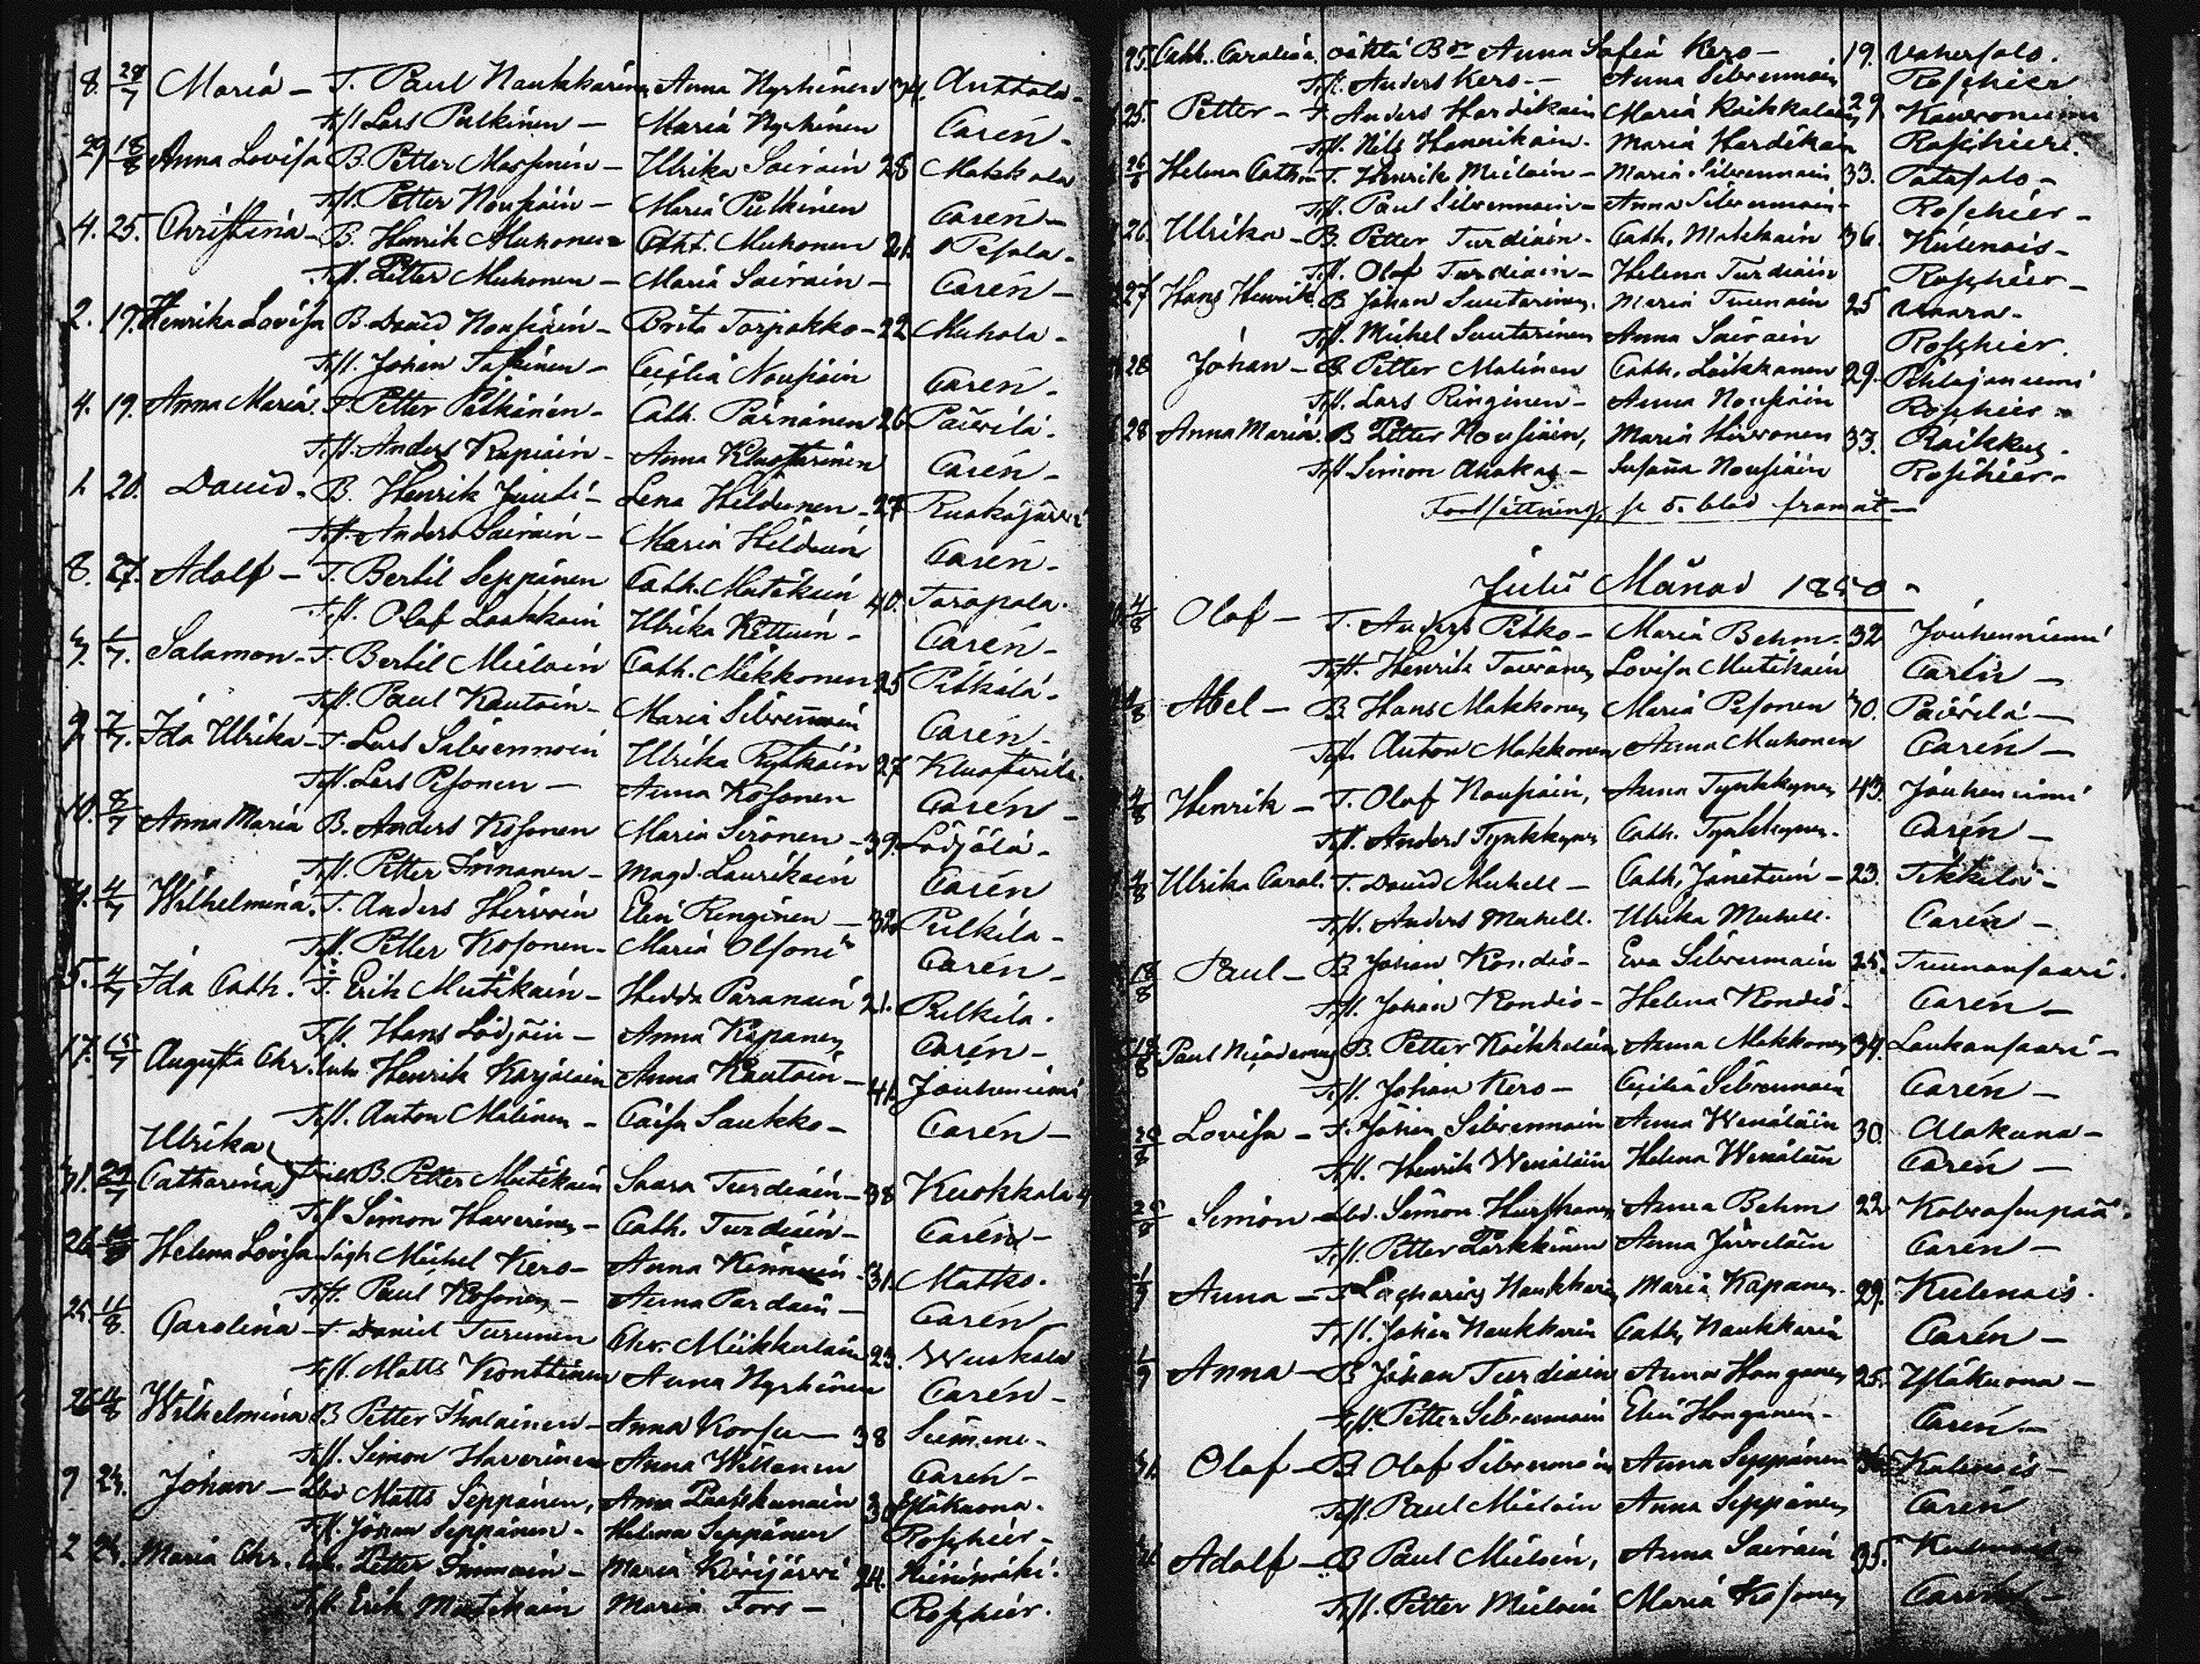 8. 28/7 Maria – T. Paul Naukkarinen Anna Nyrhinen 34. Anttola –
Test. Lars Pulkinen – Maria Nyrhinen Carén –
29 18/8 Anna Lovisa B. Petter Massinen – Ulrika Sairain 28 Makkola
Test. Petter Nousiain – Maria Pulkinen Carén –
4. 25. Christina – B. Henrik Muhonen Cath. Muhonen 21. Pesola –
Test. Petter Muhonen – Maria Sairain – Carén –
2. 19. Henrika Lovisa B. David Nousiain – Brita Torjakko – 22 Muhola –
Test. Johan Taskinen – Cecilia Nousiain Carén –
4. 19. Anna Maria. T. Petter Pitkänen – Cath. Pärnänen 26 Päivilä.
Test. Anders Kapiain – Anna Kluastarinen Carén –
1. 20. David. B. Henrik Juuti – Lena Hildunen – 27 Ruokojärvi
Test. Anders Sairain – Maria Hildun Carén –
8. 27. Adolf – T. Bertil Seppänen Cath. Matikain 40. Tarapala.
Test. Olof Laukkain Ulrika Kettuin – Carén –
1/7. Salamon – T. Bertil Mielain Cath. Mikkonen 25 Pitkälä –
Test. Paul Kautoin – Maria Silvennoin Carén –
9. 7/7. Ida Ulrika – T. Lars Silvennoin Ulrika Rytkäin 27 Kluastarila.
Test. Lars Pesonen – Anna Kosonen Carén –
10. 8/7 Anna Maria B. Anders Kosonen Maria Sironen – 39. Lödjölä –
Test. Petter Immonen – Magd. Laurikain Carén
4/7 Wilhelmina. T. Anders Hirvoin Elin Renginen – 32 Pulkila –
Test. Petter Kosonen – Maria Olsoni Carén –
5. 4/7 Ida Cath. T. Erik Mutikain – Hedda Paranain 21. Pulkila.
Test. Hans Lödjöin – Anna Kapanen Carén –
17. 15/7 Augusta Chr. Inh. Henrik Karjalain Anna Kautoin – 41. Jouhenniemi
Test. Anton Malinen – Caisa Saukko – Carén –
Ulrika
Catharina B. Petter Mutikain Saara Turdiain – 38 Kuokkala
Test. Simon Haverinen – Cath. Turdiain – Carén –
26. Helena Lovisa Michel Kero – Anna Kinnuin 31. Matko.
Test. Paul Kosonen – Anna Pardain – Carén
25. 11/8. Carolina – T. Daniel Turunen Chr. Miikkulain 23. Wuokala
Test. Matts Konttinen Anna Nyrhinen Carén –
26 11/8 Wilhelmina B. Petter Ihalainen – Anna Korsu – 38 Suimmi –
Test. Simon Haverinen Anna Willanen Carén –
9 24. Johan – Lbo Matts Seppänen, Anna Laakkunain 30 Yläkuona.
Test. Johan Seppänen – Helena Seppänen Roschier –
2 24. Maria Chr. Petter Immoin – Maria Kirijärvi 24. Heinimäki.
Test. Erik Mutikain Maria Fors – Roschier.
25. Cath. Carolina, oäkta Bdr Anna Sofia Kero – 19. Vahersalo.
Test. Anders Kero. – Anna Silvennoin Roschier
25. Petter – T. Anders Hardikain Maria Raikkolain 29. Kauvoniemi
Test. Nils Hannikain. Maria Hardikain Roschier.
26/8 Helena Cath. – T. Henrik Mielain – Maria Silvennoin 33. Patasalo –
Test. Paul Silvennoin – Anna Silvennoin – Roschier –
26. Ulrika – B. Petter Turdiain. Cath. Makkain 36. Kulenois –
Test. Olof Turdiain – Helena Turdiain Roschier –
27 Hans Henrik. B. Johan Suutarinen. Maria Tuunain 25 Vaara –
Test. Michel Suutarinen Anna Sairain Roschier.
28 Johan – B. Petter Malinen Cath. Laikkanen 29. Pihlajaniemi
Test. Lars Ringinen – Anna Nousiain Roschier
28. Anna Maria B. Petter Nousiain, Maria Hirvonen 33. Raikkus.
Test. Simon Ahokas – Susanna Nousiain Roschier –
Fortsättning, se 5. blad framåt –
Julii Månad 1850 –
4/8 Olof – T. Anders Pitko – Maria Behm – 32 Jouhenniemi
Test. Henrik Tavranen Lovisa Mutikain Carén –
4/8 Abel – B. Hans Makkonen Maria Pesonen 30. Päivilä –
Test. Anton Makkonen Anna Muhonen Carén –
4/8 Henrik – T. Olof Nousiain, Anna Tynkkynen 43. Jouhenniemi
Test. Anders Tynkkynen Cath. Tynkkynen – Carén –
4/8 Ulrika Carol. T. David Muhell – Cath. Jänetuin – 23. Tikkila –
Test. Anders Muhell. Ulrika Muhell. Carén –
18/8 Paul – B. Johan Kondio – Eva Silvennoin 25. Tuunansaari.
Test. Johan Kondio – Helena Kondio – Carén –
18/8 Paul Nicodemus B. Petter Koikkalain Anna Makkonen 34. Laukansaari –
Test. Johan Kero – Cecilia Silvennoin Carén –
20/8 Lovisa – T. Johan Silvennoin Anna Wenäläin 30. Alakuna –
Test. Henrik Wenäläin Helena Wenäläin Carén –
25/8 Simon – Lbo. Simon Hurskanen Anna Behm 22 Kolvosenpää.
Test. Petter Parkkinen Anna Järveläin Carén –
1/9 Anna – T. Zacharias Naukkarin Maria Kapanen. 29. Kulenois.
Test. Johan Naukkarin Cath. Naukkarin Carén –
1/9 Anna – B. Johan Turdiain Anna Honganen 25. Yläkuona –
Test. Petter Silvennoin Elin Honganen – Carén –
Olof – B. Olof Silvennoin Anna Seppänen 36 Kulenois –
Test. Paul Mielain Anna Seppänen Carén
Adolf – B. Paul Mielain, Anna Sairain 35. Kulenois
Test. Petter Mielain Maria Kosonen Carén –